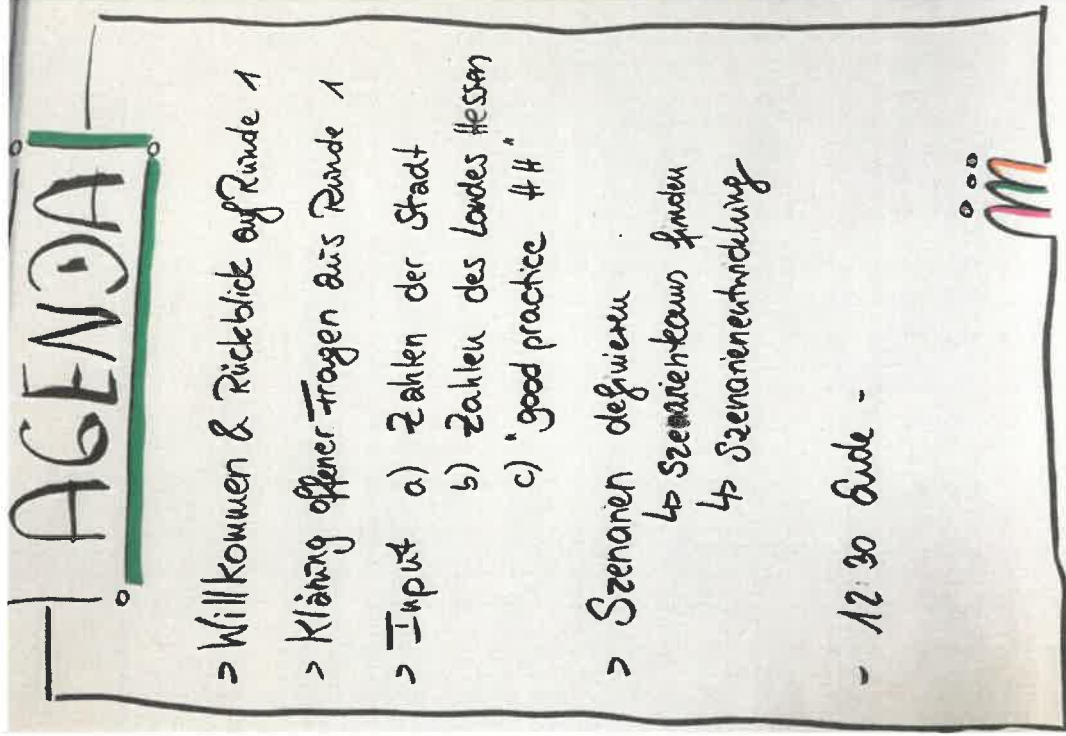 AGENDA
> Willkommen & Rückblick auf Runde 1
> Klärung offener Fragen aus Runde 1
> Input a) Zahlen der Stadt
b) Zahlen des Landes Hessen
c) "good practice HH"
> Szenarien definieren
↳ Szenarienteams finden
↳ Szenarienentwicklung
- 12:30 Ende -